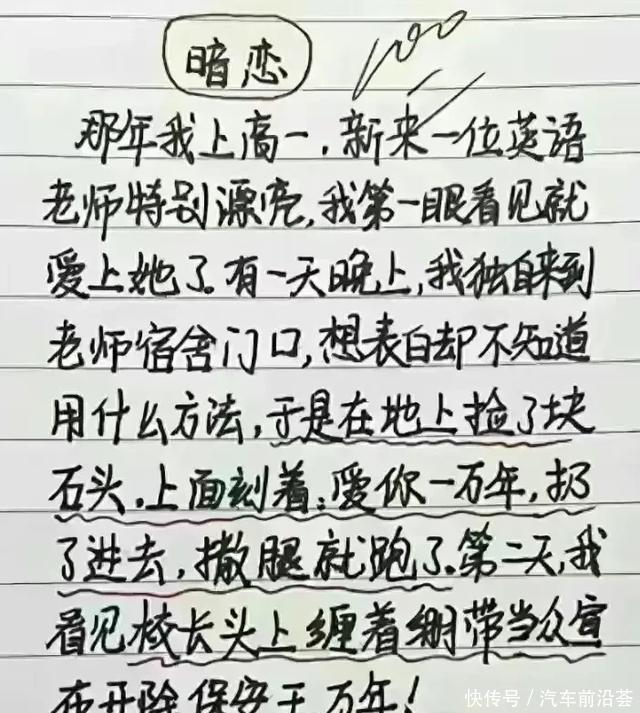 暗恋
100
那年我上高一，新来一位英语
老师特别漂亮，我第一眼看见就
爱上她了。有一天晚上，我独自来到
老师宿舍门口，想表白却不知道
用什么方法，于是在地上捡了块
石头，上面刻着：爱你一万年，扔
了进去，撒腿就跑了。第二天，我
看见校长头上缠着绷带当众宣
布开除保安王万年！
快传号／汽车前沿荟